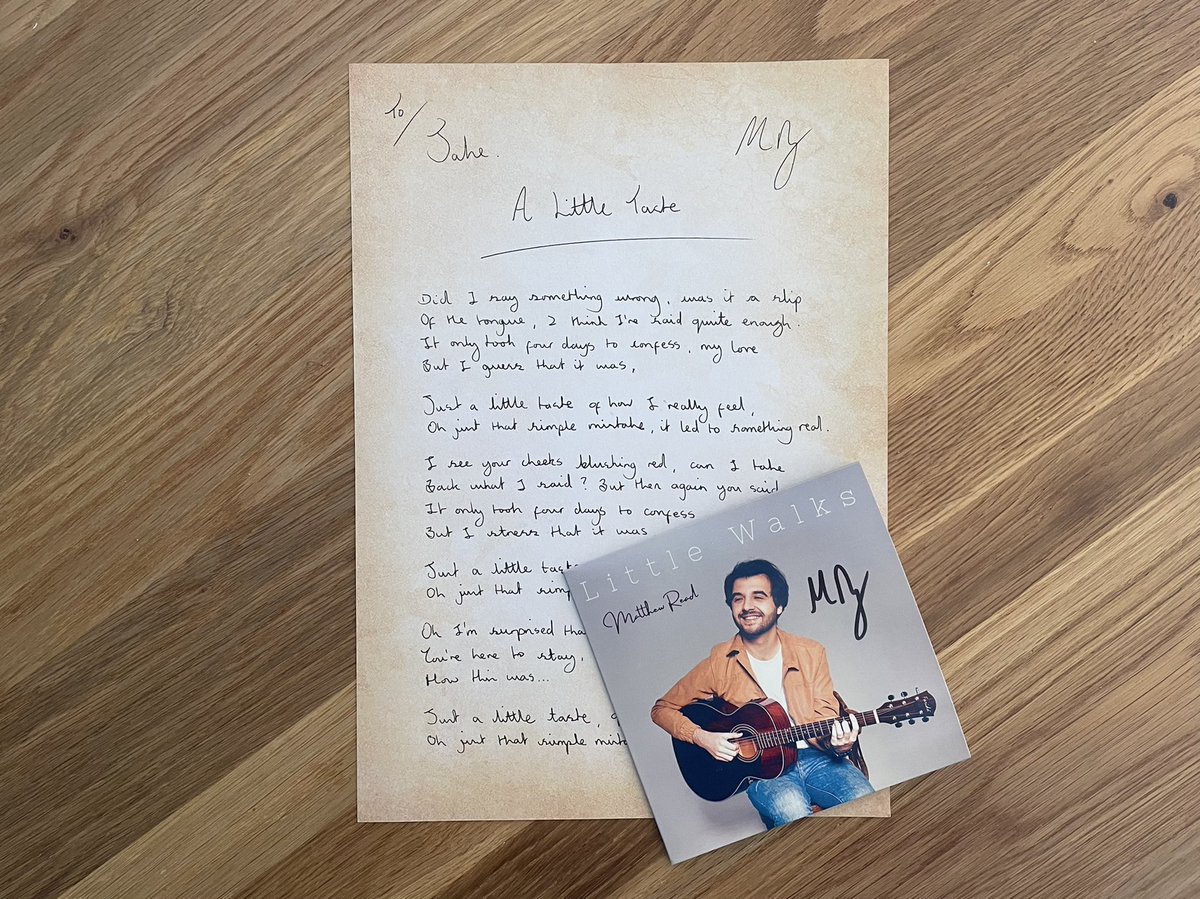 To/
Jake.
MR
A Little Taste
Did I say something wrong, was it a slip
Of the tongue, I think I've said quite enough.
It only took four days to confess, my love
But I guess that it was,
Just a little taste of how I really feel,
Oh just that simple mistake, it led to something real.
I see your cheeks blushing red, can I take
Back what I said? But then again you said
It only took four days to confess
But I stress that it was
Just a little taste
Oh just that
Oh I'm surprised
You're here to stay,
How this was...
Just a little taste,
Oh just that simple
Little Walks
Matthew Read
MR